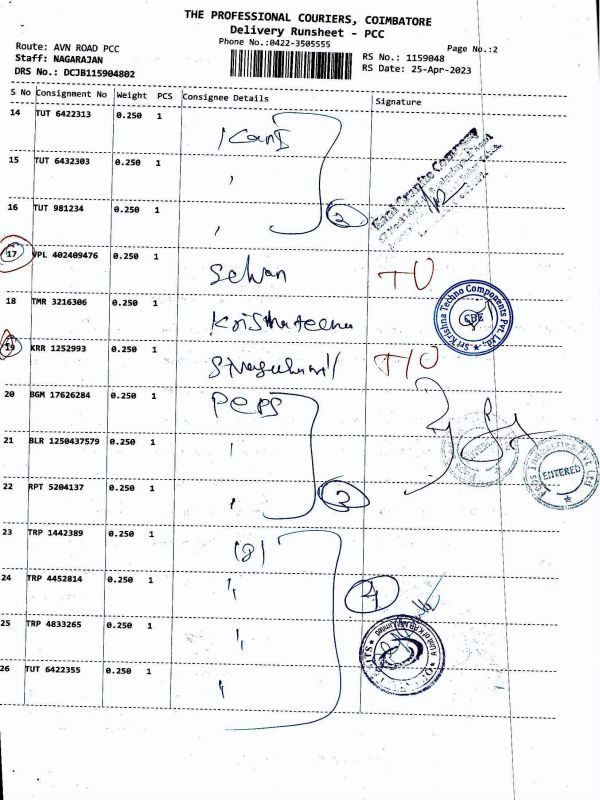 THE PROFESSIONAL COURIERS, COIMBATORE
Delivery Runsheet - PCC
Phone No.:0422-3505555
Page No.:2
Route: AVN ROAD PCC
Staff: NAGARAJAN
DRS No.: DCJB115904802
RS No.: 1159048
RS Date: 25-Apr-2023
S No Consignment No Weight PCS Consignee Details Signature
14 TUT 6422313 0.250 1
15 TUT 6432303 0.250 1 "
16 TUT 981234 0.250 1 "
3
17 VPL 402409476 0.250 1 Selvan
18 TMR 3216306 0.250 1
Sri Krishna Techno Components Pvt. Ltd.,
CBE
19 KRR 1252993 0.250 1
20 BGM 17626284 0.250 1 Peps
21 BLR 1250437579 0.250 1 "
22 RPT 5204137 0.250 1 "
3
Peps Industries Pvt Ltd
ENTERED
23 TRP 1442389 0.250 1
24 TRP 4452814 0.250 1 "
4
25 TRP 4833265 0.250 1 "
26 TUT 6422355 0.250 1 "